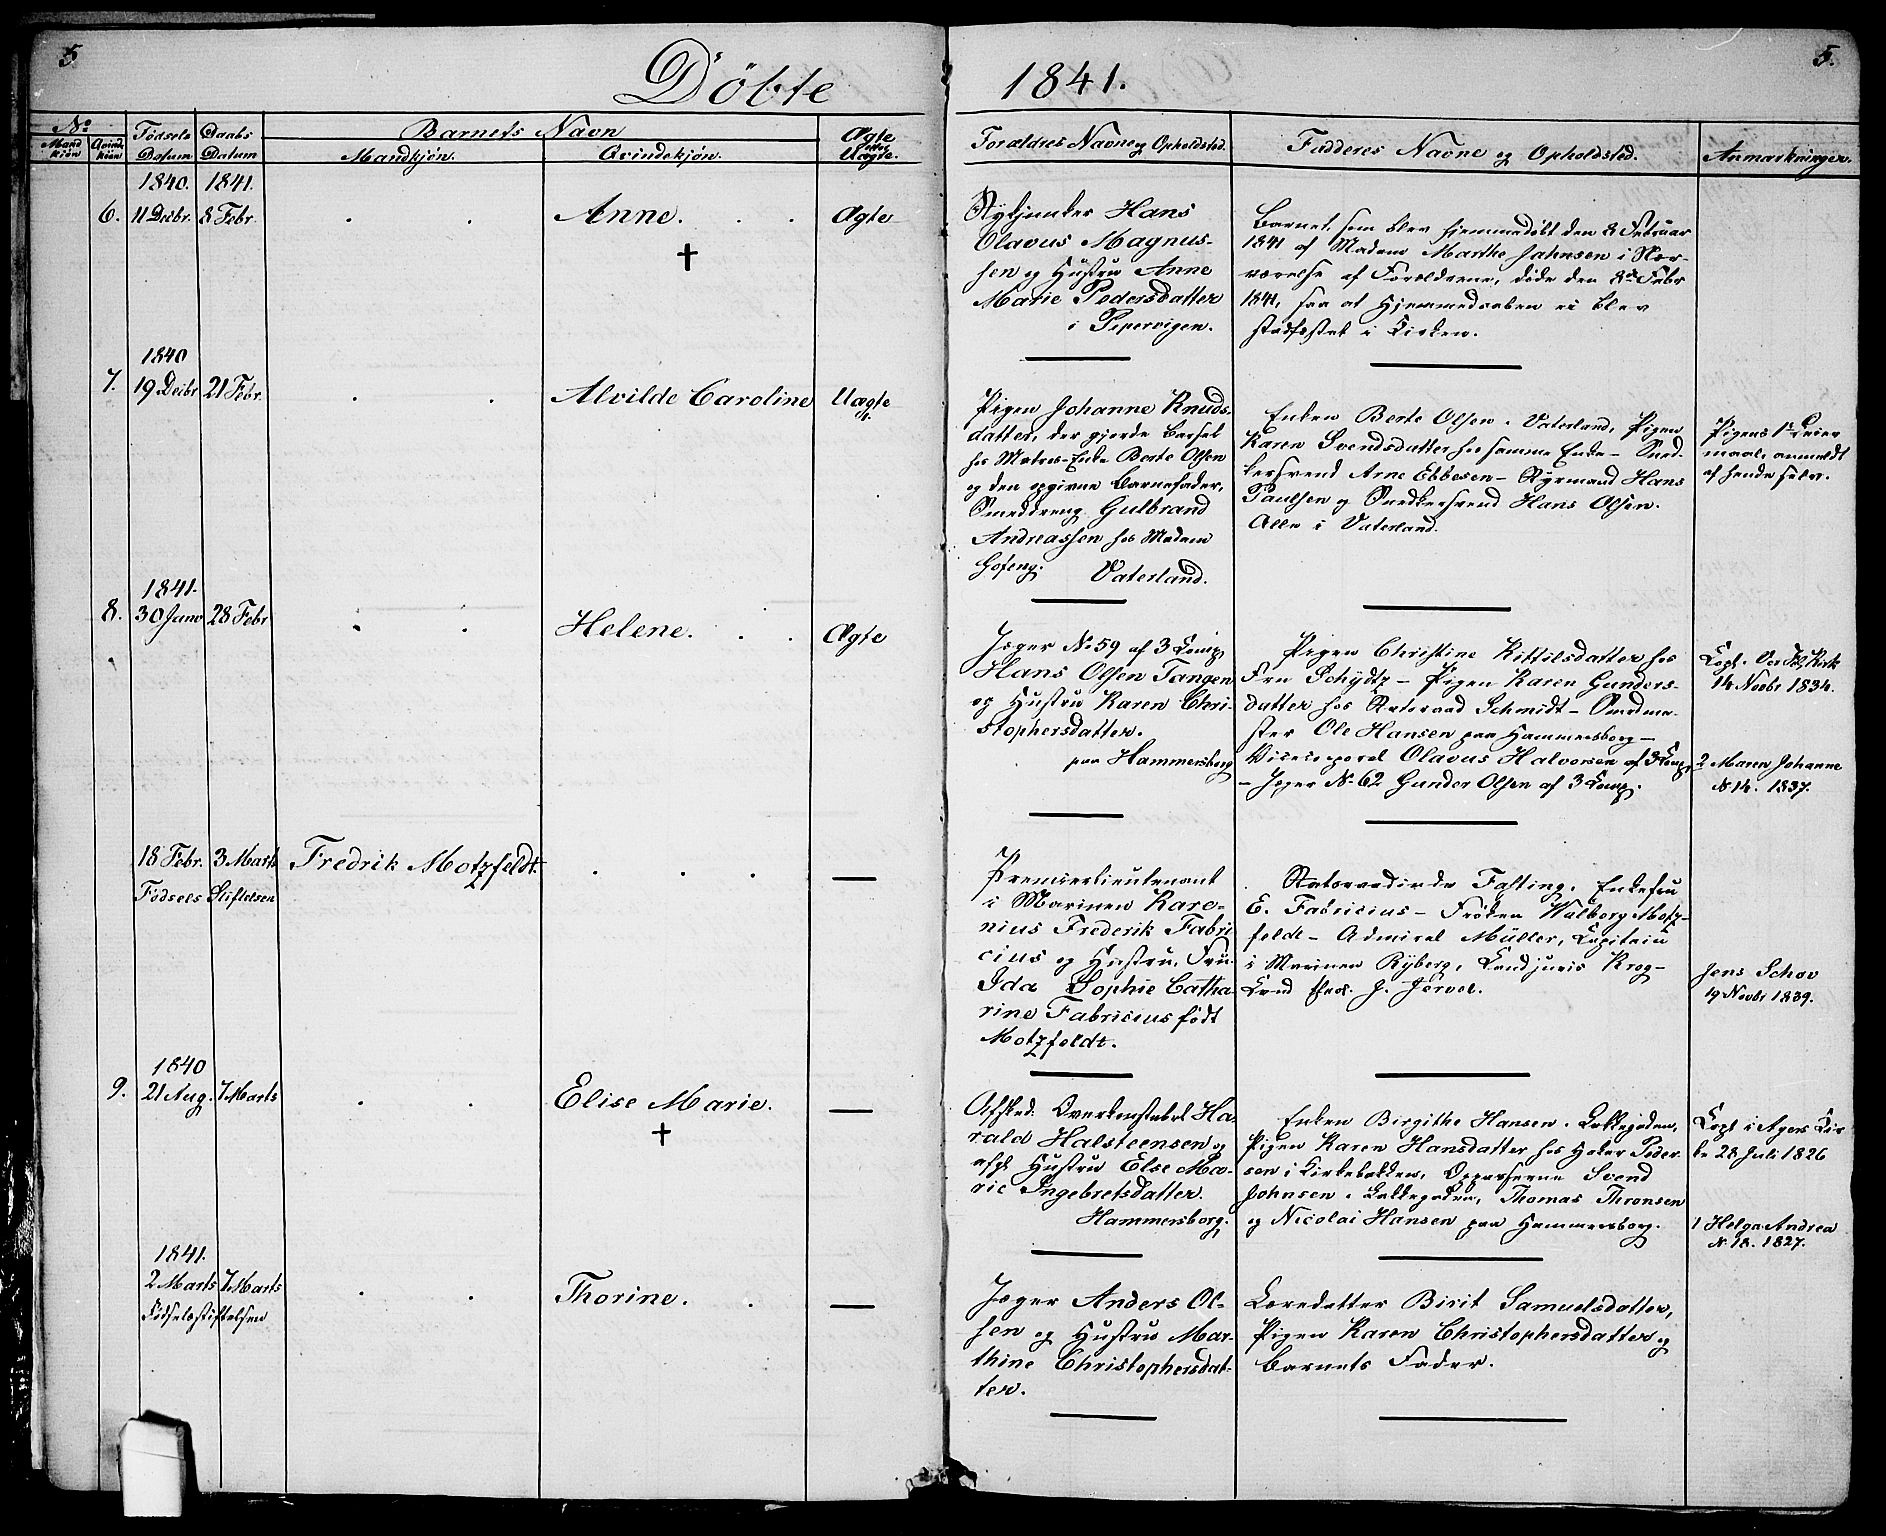 5
5.
Döbte
1841.
No
Mand kiön
Qvinde kiön
Födsels Datum
Daabs Datum
Barnets Navn
Mandkjön.
Qvindekjön.
Ægte eller Uægte.
Forældres Navne og Opholdsted.
Fadderes Navne og Opholdsted.
Anmærkninger.
1840. 1841.
6. 11 Decbr. 8 Febr.
Anne.
†
Ægte
Hans
Olavus Magnus-
sen og Hustru Anne
Marie Pedersdatter
i Pipervigen.
Barnet, som blev hjemmedöbt den 8 Februar
1841 af Madam Marthe Jahnsen i Nær-
værelse af Forældrene, döde den 8de Febr
1841, saa at Hjemmedaaben ei blev
stadfæstet i Kirken.
1840
7. 19 Decbr 21 Febr.
Alvilde Caroline
Uægte
Pigen Johanne Knuds-
datter, der gjorde Barsel
hos Matros-Enke Berte Olsen
og den opgivne Barnefader,
Smeddreng Gulbrand
Andreassen hos Madam
Vaterland.
Enken Berte Olsen i Vaterland, Pigen
Karen Svendsdatter hos samme Enke – Sned-
kersvend Arne Ebbesen – Styrmand Hans
Paulsen og Snedkersvend Hans Olsen.
Alle i Vaterland.
Pigens 1ste Leier
maal, anmeldt
af hende selv.
1841.
8. 30 Janv 28 Febr
Helene.
Ægte
Jæger No 59 af 3 Comp
Hans Olsen Tangen
og Hustru Karen Chri-
stophersdatter.
paa Hammersborg
Pigen Christine Kittilsdatter hos
Fru Schydtz – Pigen Karen Gunders-
datter hos Statsraad Schmidt – Smedme-
ster Ole Hansen paa Hammersborg –
Vicecorporal Olavus Halvorsen af 3 Comp,
– Jæger No 62 Gunder Olsen af 3 Comp.
Copl. Kirk
14 Novbr 1834.
2 Maren Johanne
N 14. 1837.
18 Febr. 3 Marts
Födsels Stiftelsen
Fredrik Motzfeldt.
—
Premierlieutenant
i Marinen Karo-
nius Frederik Fabri
cius og Hustru, Fru
Ida Sophie Catha-
rine Fabricius född
Motzfeldt.
Statsraadinde Fasting, Enkefru
E. Fabricius – Fröken Walborg Motz-
feldt – Admiral Müller, Capitain
i Marinen Ryberg, Candjuris Krog –
Cand theol. J. Jervel.
Jens Schov
19 Novbr 1839.
1840
9. 21 Aug. 7 Marts
Elise Marie.
†
—
Afsked: Overkonstabel Ha-
rald Halsteensen og
afgl Hustru Else Ma-
rie Ingebretsdatter.
Hammersborg.
Enken Birgithe Hansen i Løkkegaden,
Pigen Karen Hansdatter hos Høker Peder
sen i Kirkebakken, Oppasserne Svend
Johnsen i Løkkegaden, Thomas Thronsen
og Nicolai Hansen paa Hammersborg.
Copl i Agers Kir
ke 28 Juli 1826
1 Helga Andrea
N. 18. 1827.
1841.
2 Marts 7 Marts
Födselsstiftelsen
Thorine.
—
Jæger Anders Ol-
sen og Hustru Mar-
thine Christophersdat-
ter.
Læredatter Birit Samuelsdatter,
Pigen Karen Christophersdatter og
Barnets Fader.